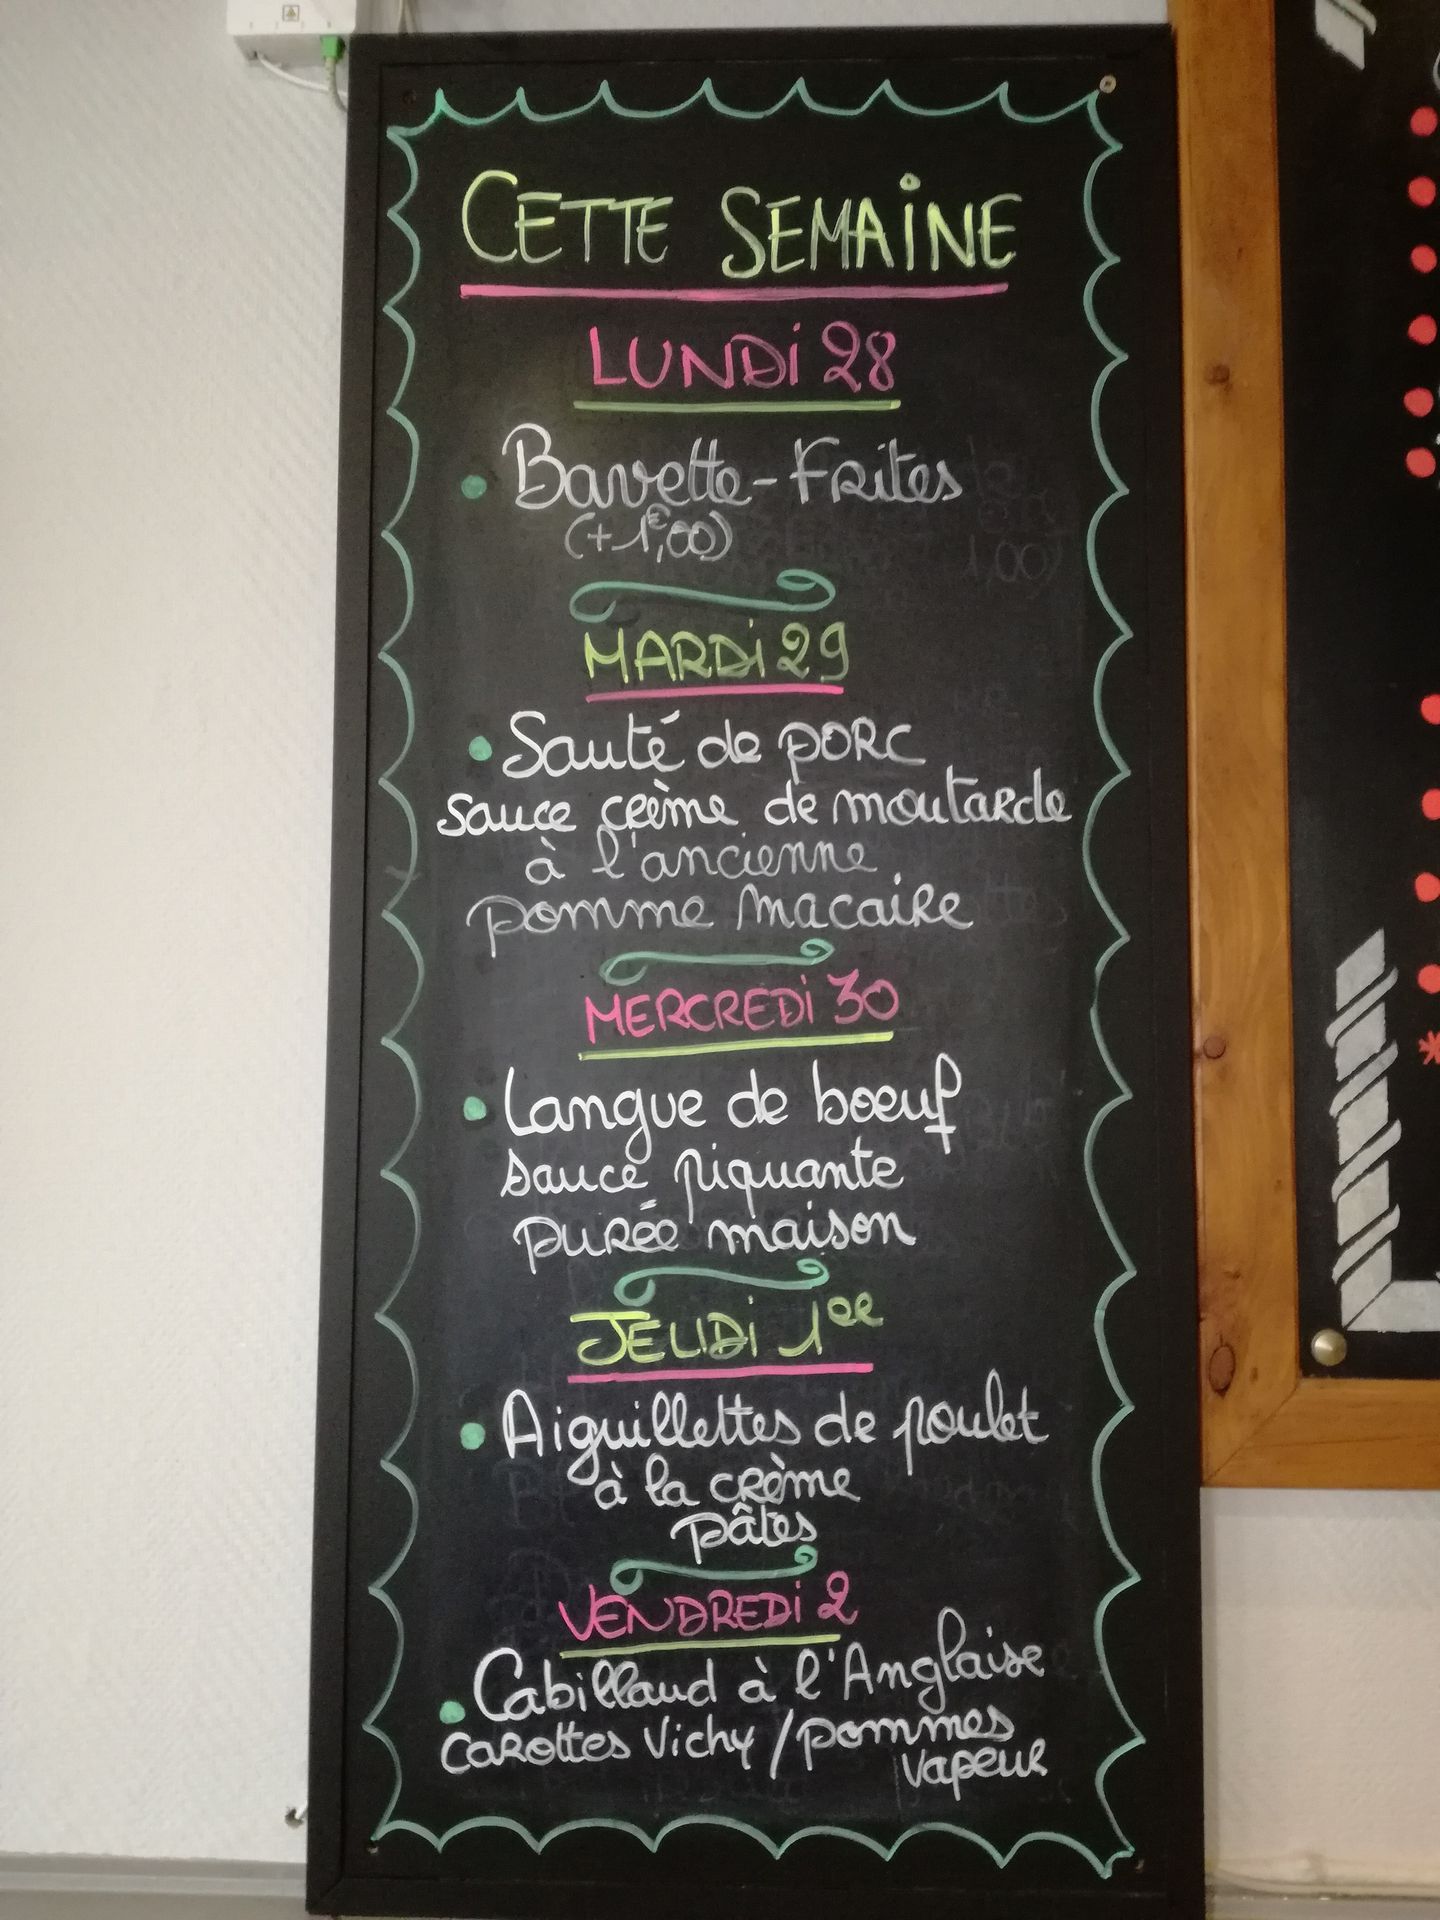 CETTE SEMAINE
LUNDI 28
• Bavette-Frites
(+1€,00)
MARDI 29
• Sauté de porc
sauce crème de moutarde
à l'ancienne
pomme macaire
MERCREDI 30
• Langue de boeuf
sauce piquante
purée maison
JEUDI 1er
• Aiguillettes de poulet
à la crème
pâtes
VENDREDI 2
• Cabillaud à l'Anglaise
carottes Vichy / pommes
vapeur